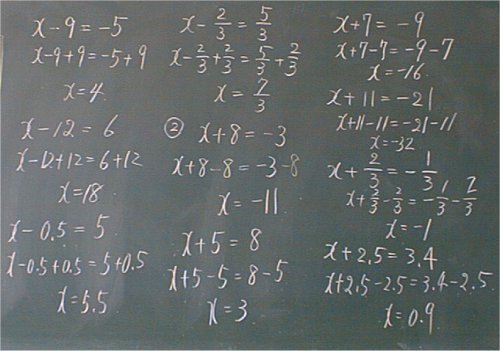 x - 9 = -5
x - 9 + 9 = -5 + 9
x = 4
x - 12 = 6
x - 12 + 12 = 6 + 12
x = 18
x - 0.5 = 5
x - 0.5 + 0.5 = 5 + 0.5
x = 5.5
x - 2/3 = 5/3
x - 2/3 + 2/3 = 5/3 + 2/3
x = 7/3
② x + 8 = -3
x + 8 - 8 = -3 - 8
x = -11
x + 5 = 8
x + 5 - 5 = 8 - 5
x = 3
x + 7 = -9
x + 7 - 7 = -9 - 7
x = -16
x + 11 = -21
x + 11 - 11 = -21 - 11
x = -32
x + 2/3 = -1/3
x + 2/3 - 2/3 = -1/3 - 2/3
x = -1
x + 2.5 = 3.4
x + 2.5 - 2.5 = 3.4 - 2.5
x = 0.9